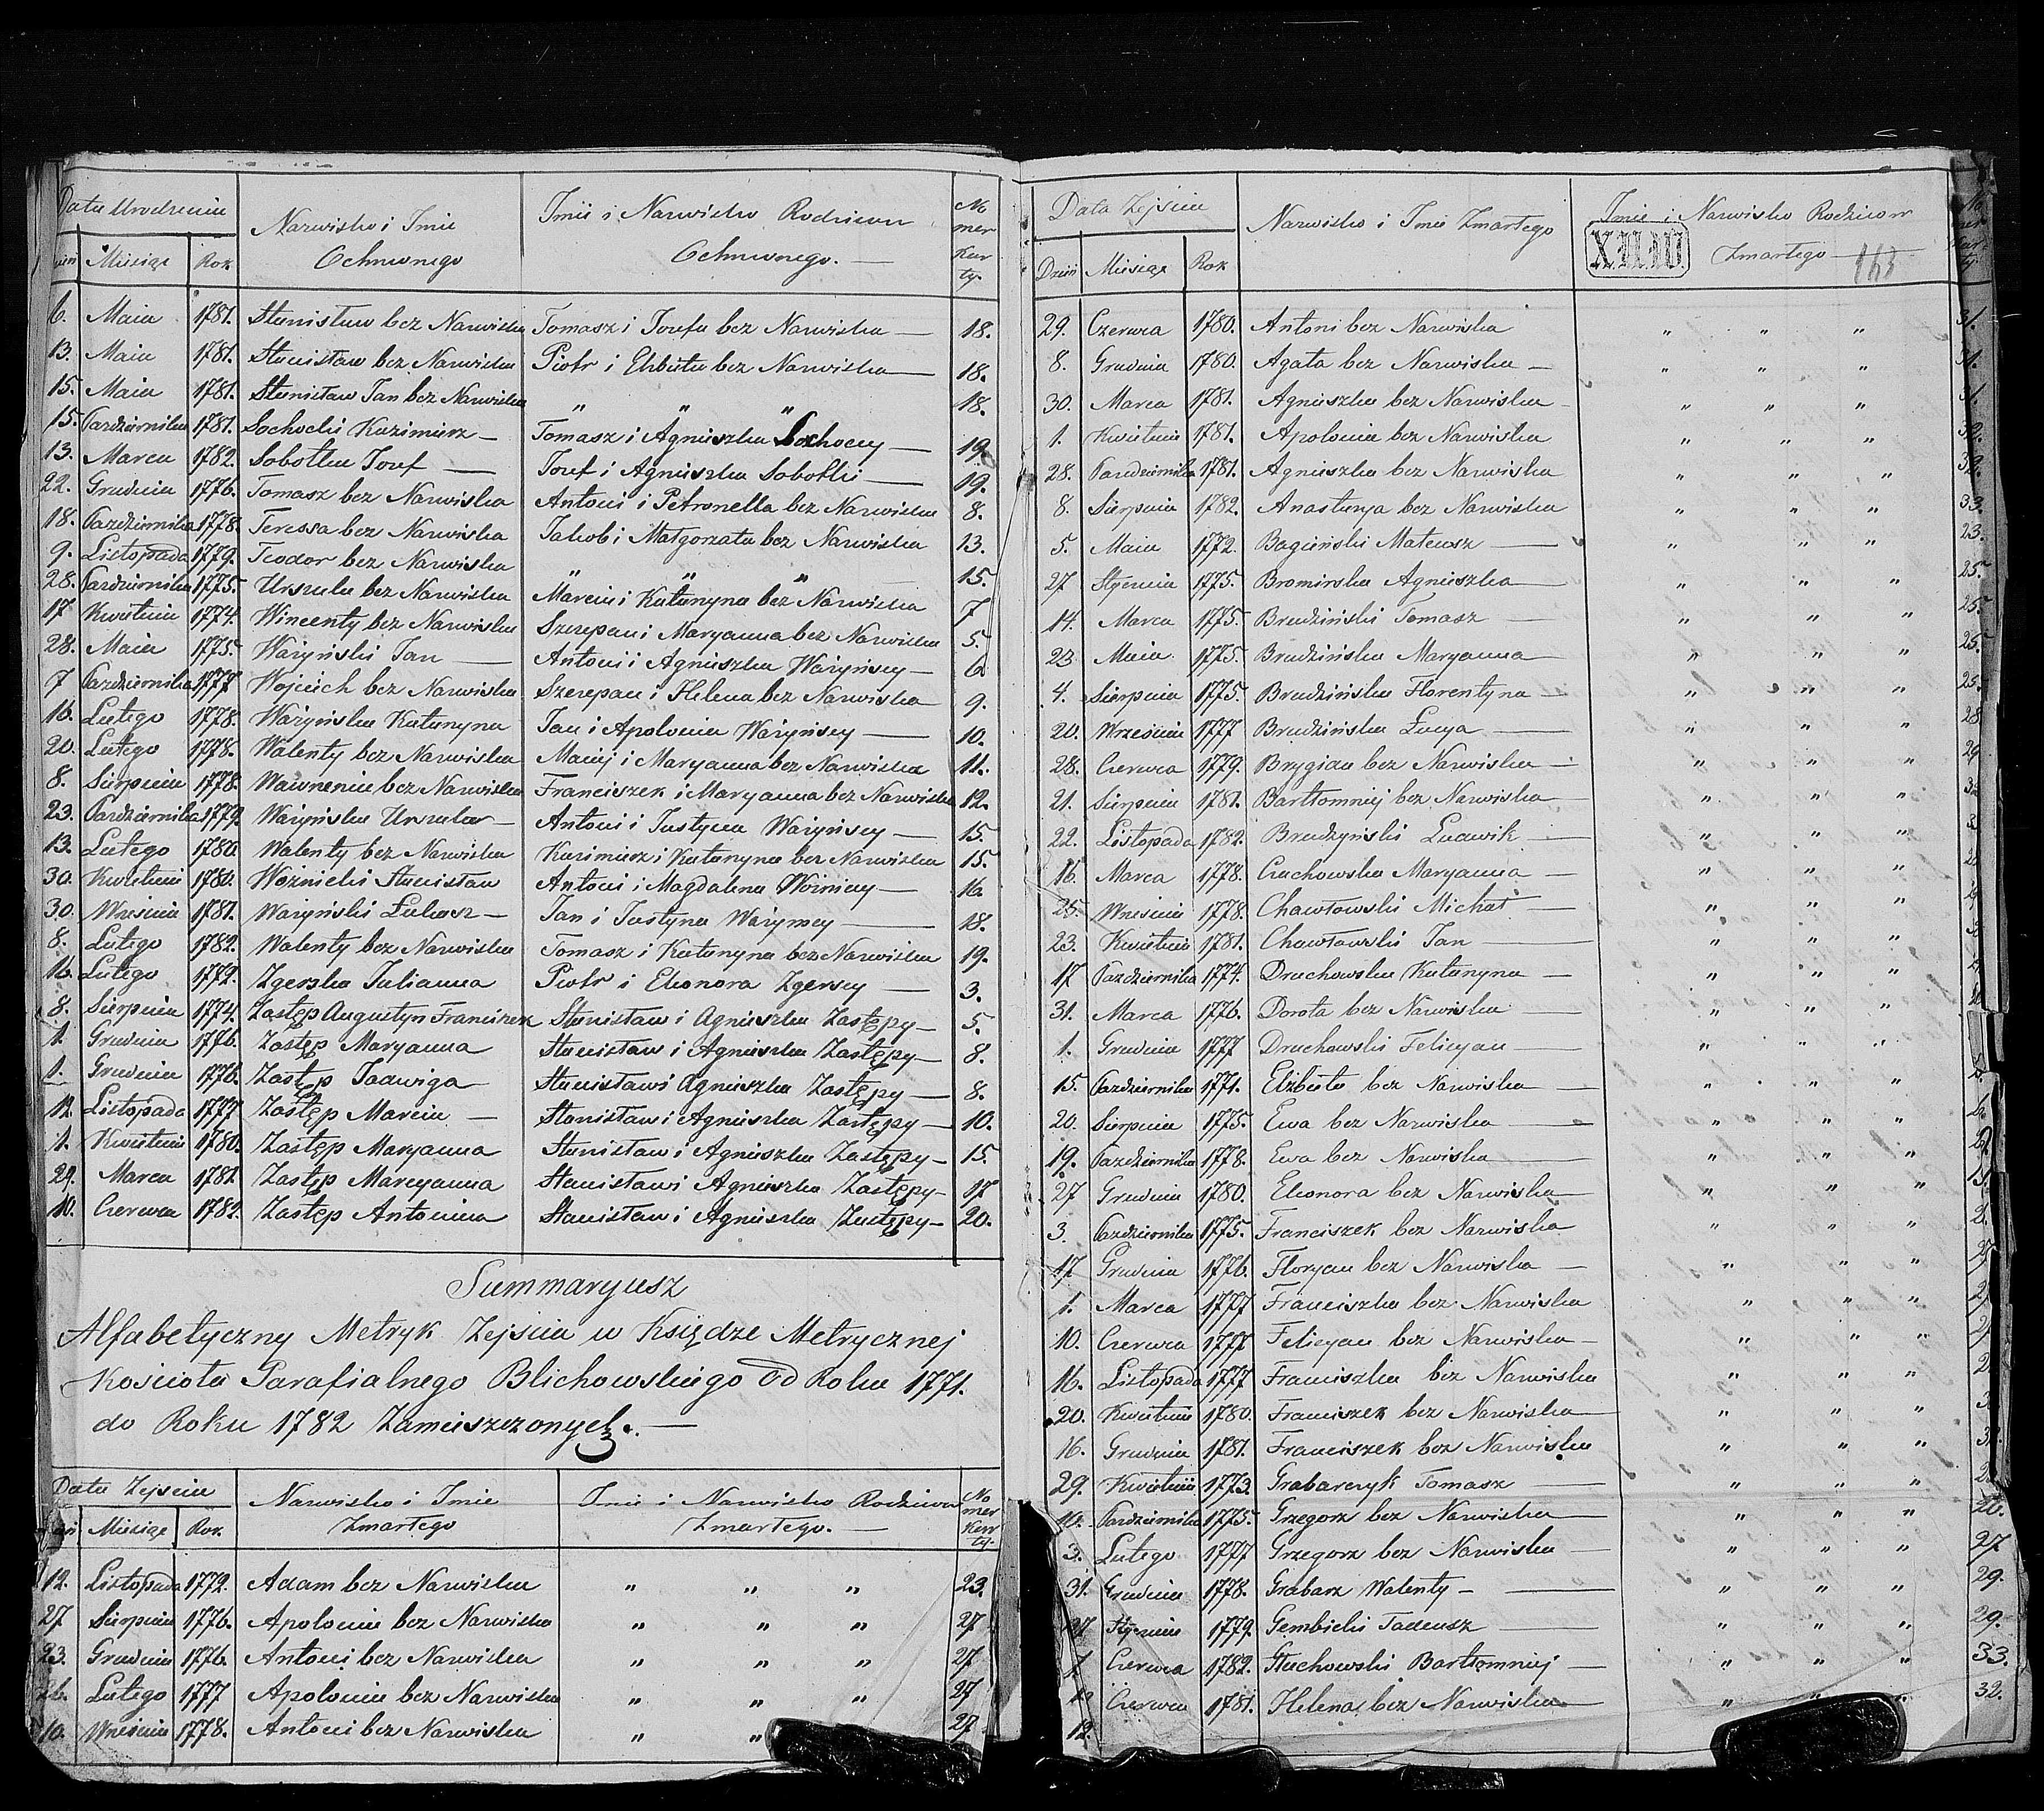 Data Urodzenia
Nazwisko i Imie Ochrzconego
Imie i Nazwisko Rodzicow Ochrzconego. —
No mer Kar ty.
Miesiąc Rok
6. Maia 1781. Stanisław bez Nazwiska Tomasz i Jozefa bez Nazwiska — 18.
13. Maia 1781. Stanisław bez Nazwiska Piotr i Elzbieta bez Nazwiska — 18.
15. Maia 1781. Stanisław Jan bez Nazwiska " " " 18.
15. Pazdziernika 1781. Sochocki Kazimierz — Tomasz i Agnieszka Sochoccy — 19.
13. Marca 1782. Sobotka Jozef — Jozef i Agnieszka Sobotki — 19.
22. Grudnia 1776. Tomasz bez Nazwiska Antoni i Petronella bez Nazwiska 8.
18. Pazdziernika 1778. Teressa bez Nazwiska Jakob i Małgorzata bez Nazwiska 13.
9. Listopada 1779. Teodor bez Nazwiska " " " 15.
28. Pazdziernika 1775. Urszula bez Nazwiska Marcin i Katarzyna bez Nazwiska 7
17 Kwietnia 1774. Wincenty bez Nazwiska Szczepan i Maryanna bez Nazwiska 5.
28. Maia 1775. Ważyński Jan — Antoni i Agnieszka Ważyńscy — 6.
7 Pazdziernika 1777 Wojciech bez Nazwiska Szczepan i Helena bez Nazwiska 9.
16. Lutego 1778. Ważyńska Katarzyna Jan i Apolonia Ważyńscy — 10.
20. Lutego 1778. Walenty bez Nazwiska Maciej i Maryanna bez Nazwiska 11.
8. Sierpnia 1778. Wawrzeniec bez Nazwiska Franciszek i Maryanna bez Nazwiska 12.
23. Pazdziernika 1779. Ważyńska Urszula — Antoni i Justyna Ważyńscy — 15.
13. Lutego 1780. Walenty bez Nazwiska Kazimierz i Katarzyna bez Nazwiska 15.
30. Kwietnia 1780. Woznicki Stanisław Antoni i Magdalena Wozniccy — 16.
30. Wrzesnia 1781. Ważyński Łukasz — Jan i Justyna Ważyńscy — 18.
8. Lutego 1782. Walenty bez Nazwiska Tomasz i Katarzyna bez Nazwiska 19.
16. Lutego 1772. Zgerska Julianna Piotr i Eleonora Zgerscy — 3.
8. Sierpnia 1774. Zastęp Augustyn Franciszek Stanisław i Agnieszka Zastępy — 5.
1. Grudnia 1776. Zastęp Maryanna Stanisław i Agnieszka Zastępy — 8.
1. Grudnia 1776. Zastęp Jadwiga Stanisław i Agnieszka Zastępy — 8.
12. Listopada 1777 Zastęp Marcin — Stanisław i Agnieszka Zastępy — 10.
1. Kwietnia 1780. Zastęp Maryanna Stanisław i Agnieszka Zastępy — 15.
24. Marca 1781 Zastęp Marcyanna Stanisław i Agnieszka Zastępy — 17
10. Czerwca 1782. Zastęp Antonina Stanisław i Agnieszka Zastępy — 20.
Summaryusz
Alfabetyczny Metryk Zejscia w Księdze Metrycznej
Kościoła Parafialnego Blichowskiego od Roku 1771.
do Roku 1782 Zamieszczonych. —
Data Zejscia
Nazwisko i Imie Zmartego
Imie i Nazwisko Rodzicow Zmartego. —
No mer Kar ty.
Miesiąc Rok.
12. Listopada 1772. Adam bez Nazwiska " " " 23.
27 Sierpnia 1776. Apolonia bez Nazwiska " " " 27
23. Grudnia 1776. Antoni bez Nazwiska " " " 27
26. Lutego 1777 Apolonia bez Nazwiska " " " 27
10. Wrzesnia 1778. Antoni bez Nazwiska " " 27
Data Zejscia
Nazwisko i Imie Zmartego
Imie i Nazwisko Rodzicow
Zmartego
143
Dzień Miesiąc Rok
29. Czerwca 1780. Antoni bez Nazwiska " " " 31.
8. Grudnia 1780. Agata bez Nazwiska — " " " 31.
30. Marca 1781. Agnieszka bez Nazwiska " " " 31.
1. Kwietnia 1781. Apolonia bez Nazwiska " " " 32.
28. Pazdziernika 1781. Agnieszka bez Nazwiska " " " 32.
8. Sierpnia 1782. Anastazya bez Nazwiska " " " 33.
5. Maia 1772. Bagieński Mateusz — " " " 23.
27 Stycznia 1775. Bromirska Agnieszka — " " " 25.
14. Marca 1775. Brudziński Tomasz — " " " 25.
23 Maia 1775. Brudzińska Maryanna — " " " 25.
4. Sierpnia 1775. Brudzińska Florentyna — " " " 25.
20. Wrzesnia 1777 Brudzińska Łucya — " " " 28.
28. Czerwca 1779. Brygian bez Nazwiska — " " " 29
21. Sierpnia 1781. Bartłomniej bez Nazwiska — " " "
22. Listopada 1782. Brudzyński Ludwik — " " "
16. Marca 1778. Czachowska Maryanna — " " "
25. Wrzesnia 1778. Chawłowski Michał — " " "
23. Kwietnia 1781. Chawłowski Jan — " " "
17 Pazdziernika 1774. Druchowska Katarzyna — " " "
31. Marca 1776. Dorota bez Nazwiska — " " "
1. Grudnia 1777 Druchowski Felicyan — " " "
15. Pazdziernika 1771. Elzbieta bez Nazwiska — " " "
20. Sierpnia 1775. Ewa bez Nazwiska — " " "
19. Pazdziernika 1778. Ewa bez Nazwiska — " " "
27 Grudnia 1780. Eleonora bez Nazwiska — " " "
3. Pazdziernika 1775. Franciszek bez Nazwiska " " "
17 Grudnia 1776. Floryan bez Nazwiska — " " "
1. Marca 1777 Franciszka bez Nazwiska " " "
10. Czerwca 1777 Felicyan bez Nazwiska — " " "
16. Listopada 1777 Franciszka bez Nazwiska " " "
20. Kwietnia 1780. Franciszek bez Nazwiska — " " "
16. Grudnia 1781. Franciszek bez Nazwiska " " " 32.
29. Kwietnia 1773. Grabarczyk Tomasz — " " "
10. Pazdziernika 1775. Grzegorz bez Nazwiska — " " " 26.
3. Lutego 1777 Grzegorz bez Nazwiska — " " " 27
31. Grudnia 1778. Grabarz Walenty — " " " 29.
27 Stycznia 1779. Gembicki Tadeusz — " " " 29.
1 Czerwca 1782. Głuchowski Bartłomniej — " " " 33.
12 Czerwca 1781. Helena bez Nazwiska — " " " 32.
12.